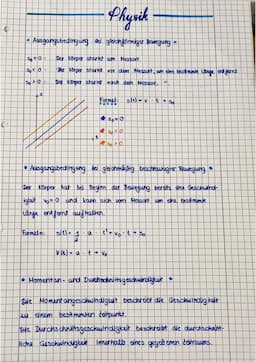 Physik
* Ausgangsbedingung bei gleichförmiger Bewegung *
s₀ = 0 : Der Körper startet am Messort.
s₀ < 0 : Der Körper startet vor dem Messort, um eine bestimmte Länge entfernt
s₀ > 0 : Der Körper startet nach dem Messort, "
Formel: s(t) = v · t + s₀
s₀ = 0
s₀ < 0
s₀ > 0
* Ausgangsbedingung bei gleichmäßig beschleunigter Bewegung *
Der Körper hat bei Beginn der Bewegung bereits eine Geschwind-
igkeit v₀ ≠ 0 und kann sich vom Messort um eine bestimmte
Länge entfernt aufhalten.
Formeln: s(t) = 1/2 · a · t² + v₀ · t + s₀
v(t) = a · t + v₀
* Momentan- und Durchschnittsgeschwindigkeit *
Die Momentangeschwindigkeit beschreibt die Geschwindigkeit
zu einem bestimmten Zeitpunkt.
Die Durchschnittsgeschwindigkeit beschreibt die durchschnitt-
liche Geschwindigkeit innerhalb eines gegebenen Zeitraums.